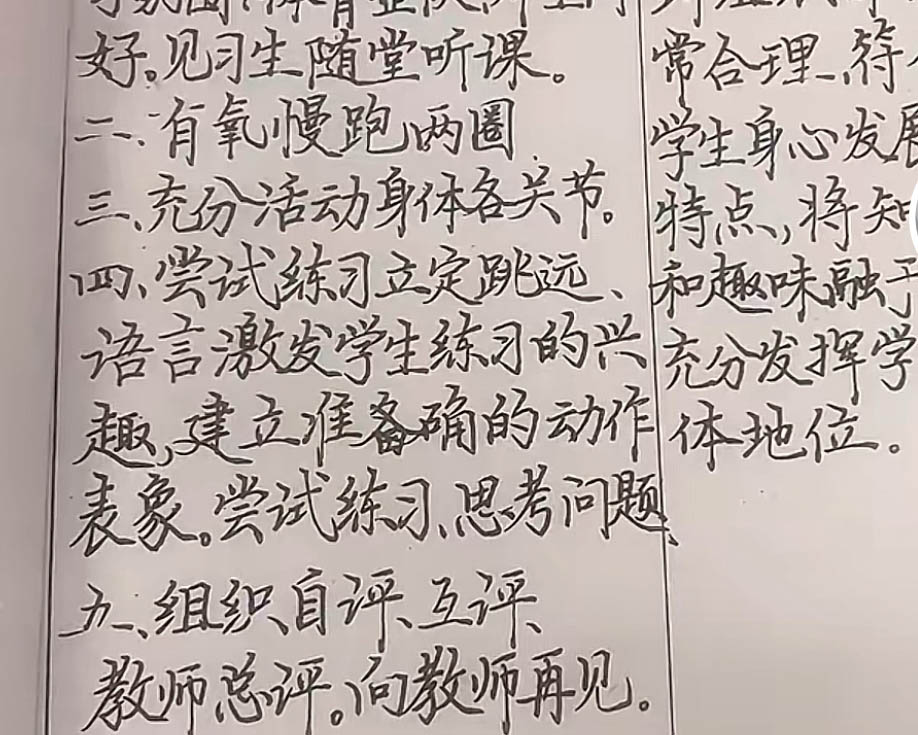 好。见习生随堂听课。
二、有氧慢跑两圈
三、充分活动身体各关节。
四、尝试练习立定跳远、
语言激发学生练习的兴
趣,建立准备确的动作
表象。尝试练习、思考问题、
五、组织自评、互评、
教师总评。向教师再见。
常合理、符
学生身心发展
特点,将知
和趣味融于
充分发挥学
体地位。